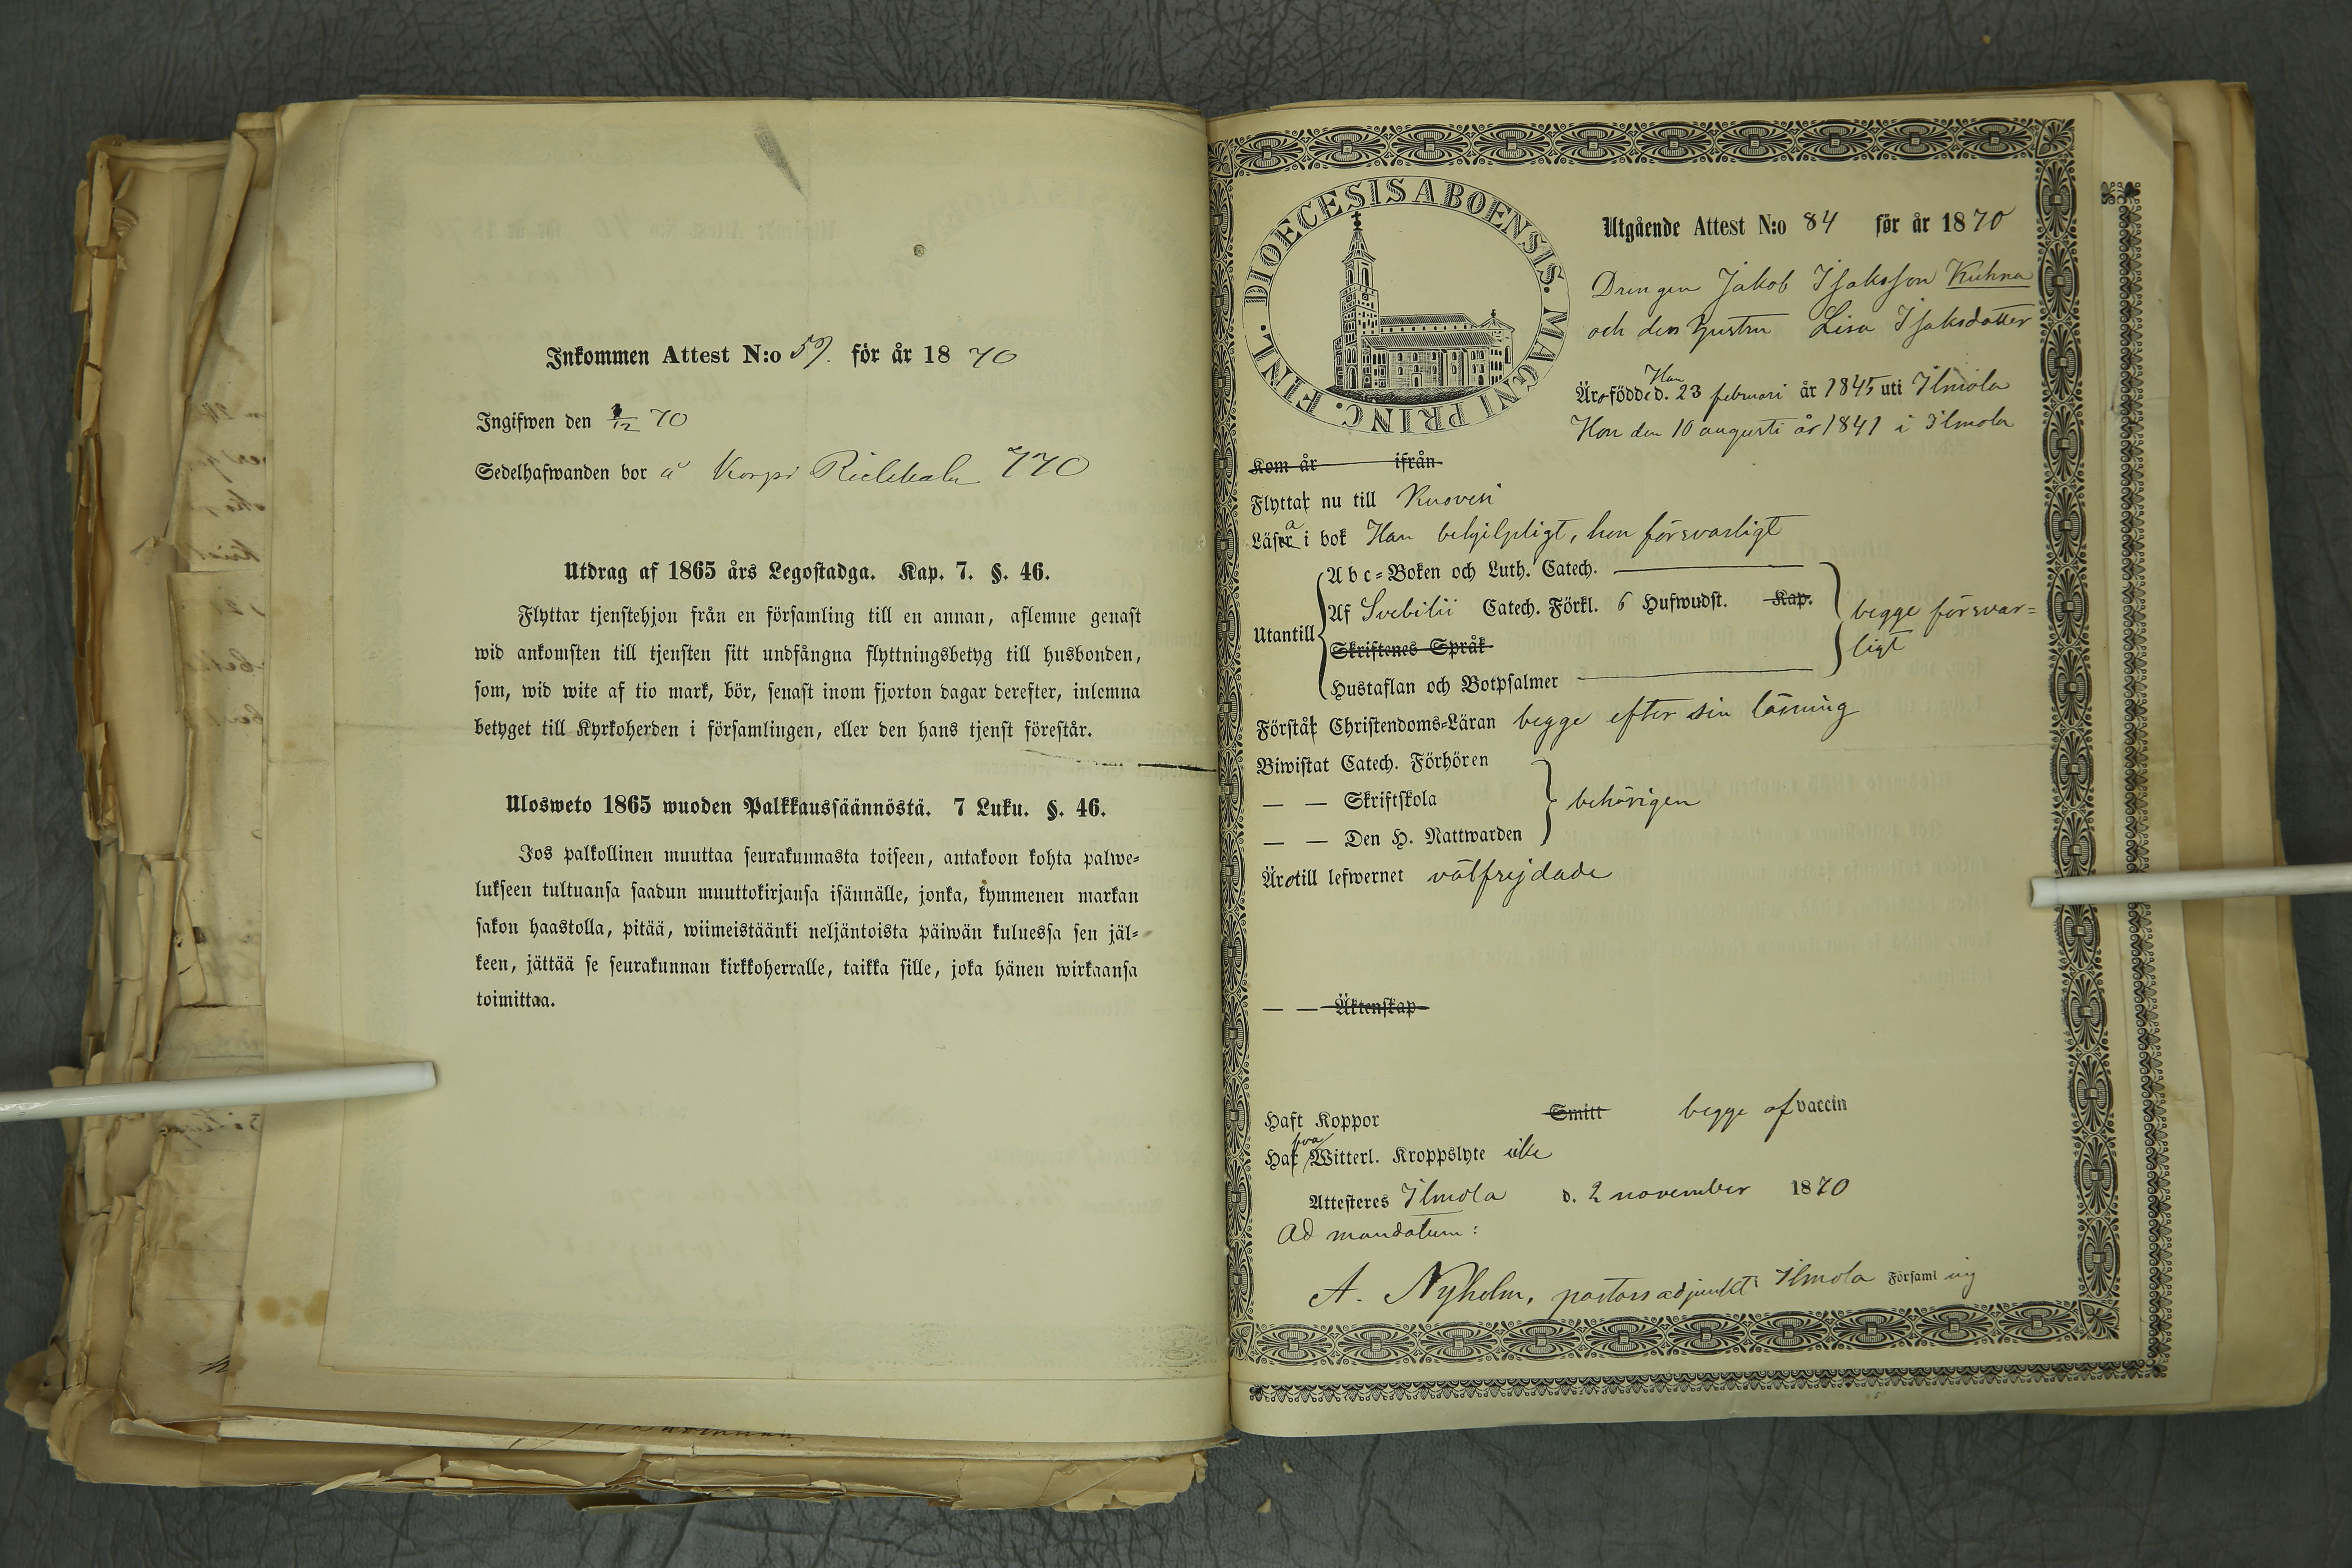 Inkommen Attest N:o 59. för år 1870
Ingifwen den 1/12 70
Sedelhafwanden bor å Korpi 770
Utdrag af 1865 års Legostadga. Kap. 7. §. 46.
Flyttar tjenstehjon från en församling till en annan, aflemne genast
wid ankomsten till tjensten sitt undfångna flyttningsbetyg till husbonden,
som, wid wite af tio mark, bör, senast inom fjorton dagar derefter, inlemna
betyget till Kyrkoherden i församlingen, eller den hans tjenst förestår.
Ulosweto 1865 wuoden Palkkaussäännöstä. 7 Luku. §. 46.
Jos palkollinen muuttaa seurakunnasta toiseen, antakoon kohta palwe=
lukseen tultuansa saadun muuttokirjansa isännälle, jonka, kymmenen markan
sakon haastolla, pitää, wiimeistäänki neljäntoista päiwän kuluessa sen jäl=
keen, jättää se seurakunnan kirkkoherralle, taikka sille, joka hänen wirkaansa
toimittaa.
FINL. DIOECESIS ABOENSIS. MAGNI PRINC.
Utgående Attest N:o 84 för år 1870
Drengen Jakob Isaksson Kuhna
och dess hustru Lisa Isaksdotter
Han
Äro födde d. 23 februari år 1845 uti Ilmola
Hon den 10 augusti år 1841 i Ilmola
Kom år ifrån
Flyttar nu till Ruovesi
Läsa i bok Han behjelpligt, hon försvarligt
Utantill
Abc=Boken och Luth. Catech.
Af Svebilii Catech. Förkl. 6 Hufwudst. Kap.
Skriftenes Språk
Hustaflan och Botpsalmer
begge försvar=
ligt
Förstår Christendoms=Läran begge efter sin läsning
Biwistat Catech. Förhören
— — Skriftskola
— — Den H. Nattwarden
behörigen
Äro till lefwernet välfrejdade
— — Äktenskap
Haft Koppor Smitt begge af vaccin
Hafva Witterl. Kroppslyte icke
Attesteres Ilmola d. 2 november 1870
Ad mandatum:
A. Nyholm, pastorsadjunkt i Ilmola Församling